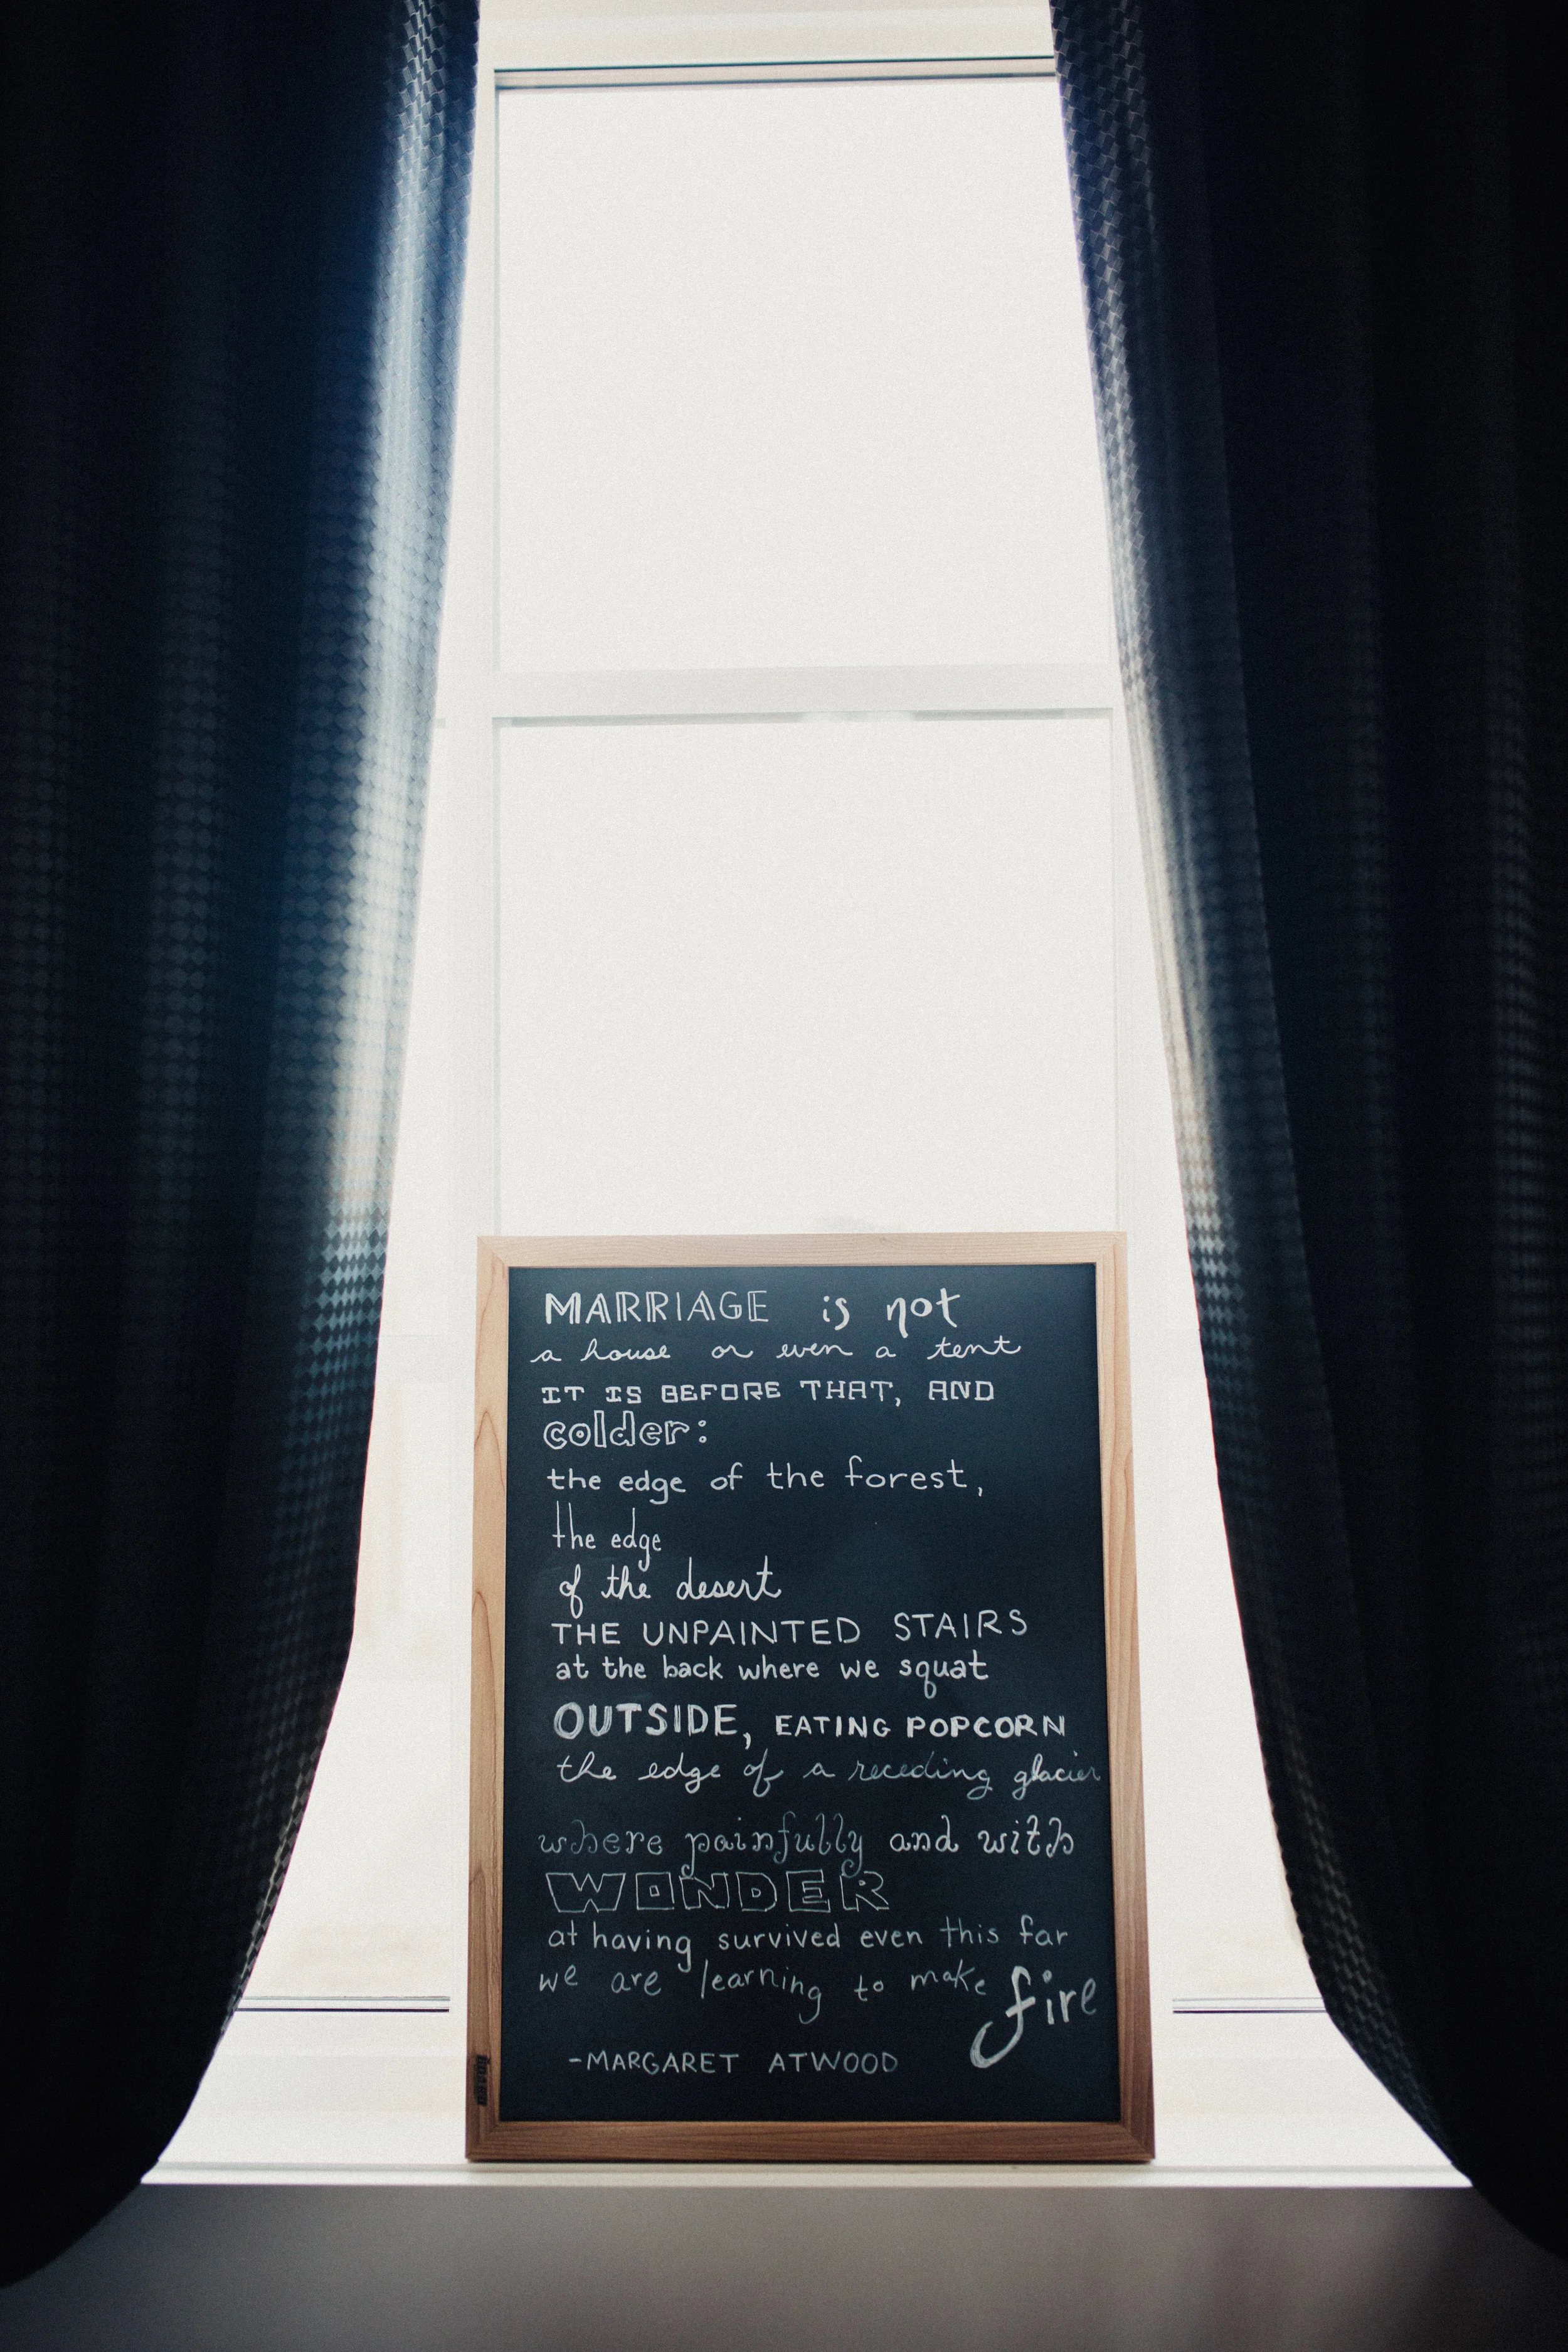 MARRIAGE is not
a house or even a tent
IT IS BEFORE THAT, AND
colder:
the edge of the forest,
the edge
of the desert
THE UNPAINTED STAIRS
at the back where we squat
OUTSIDE, EATING POPCORN
the edge of a receding glacier
where painfully and with
WONDER
at having survived even this far
we are learning to make fire
-MARGARET ATWOOD